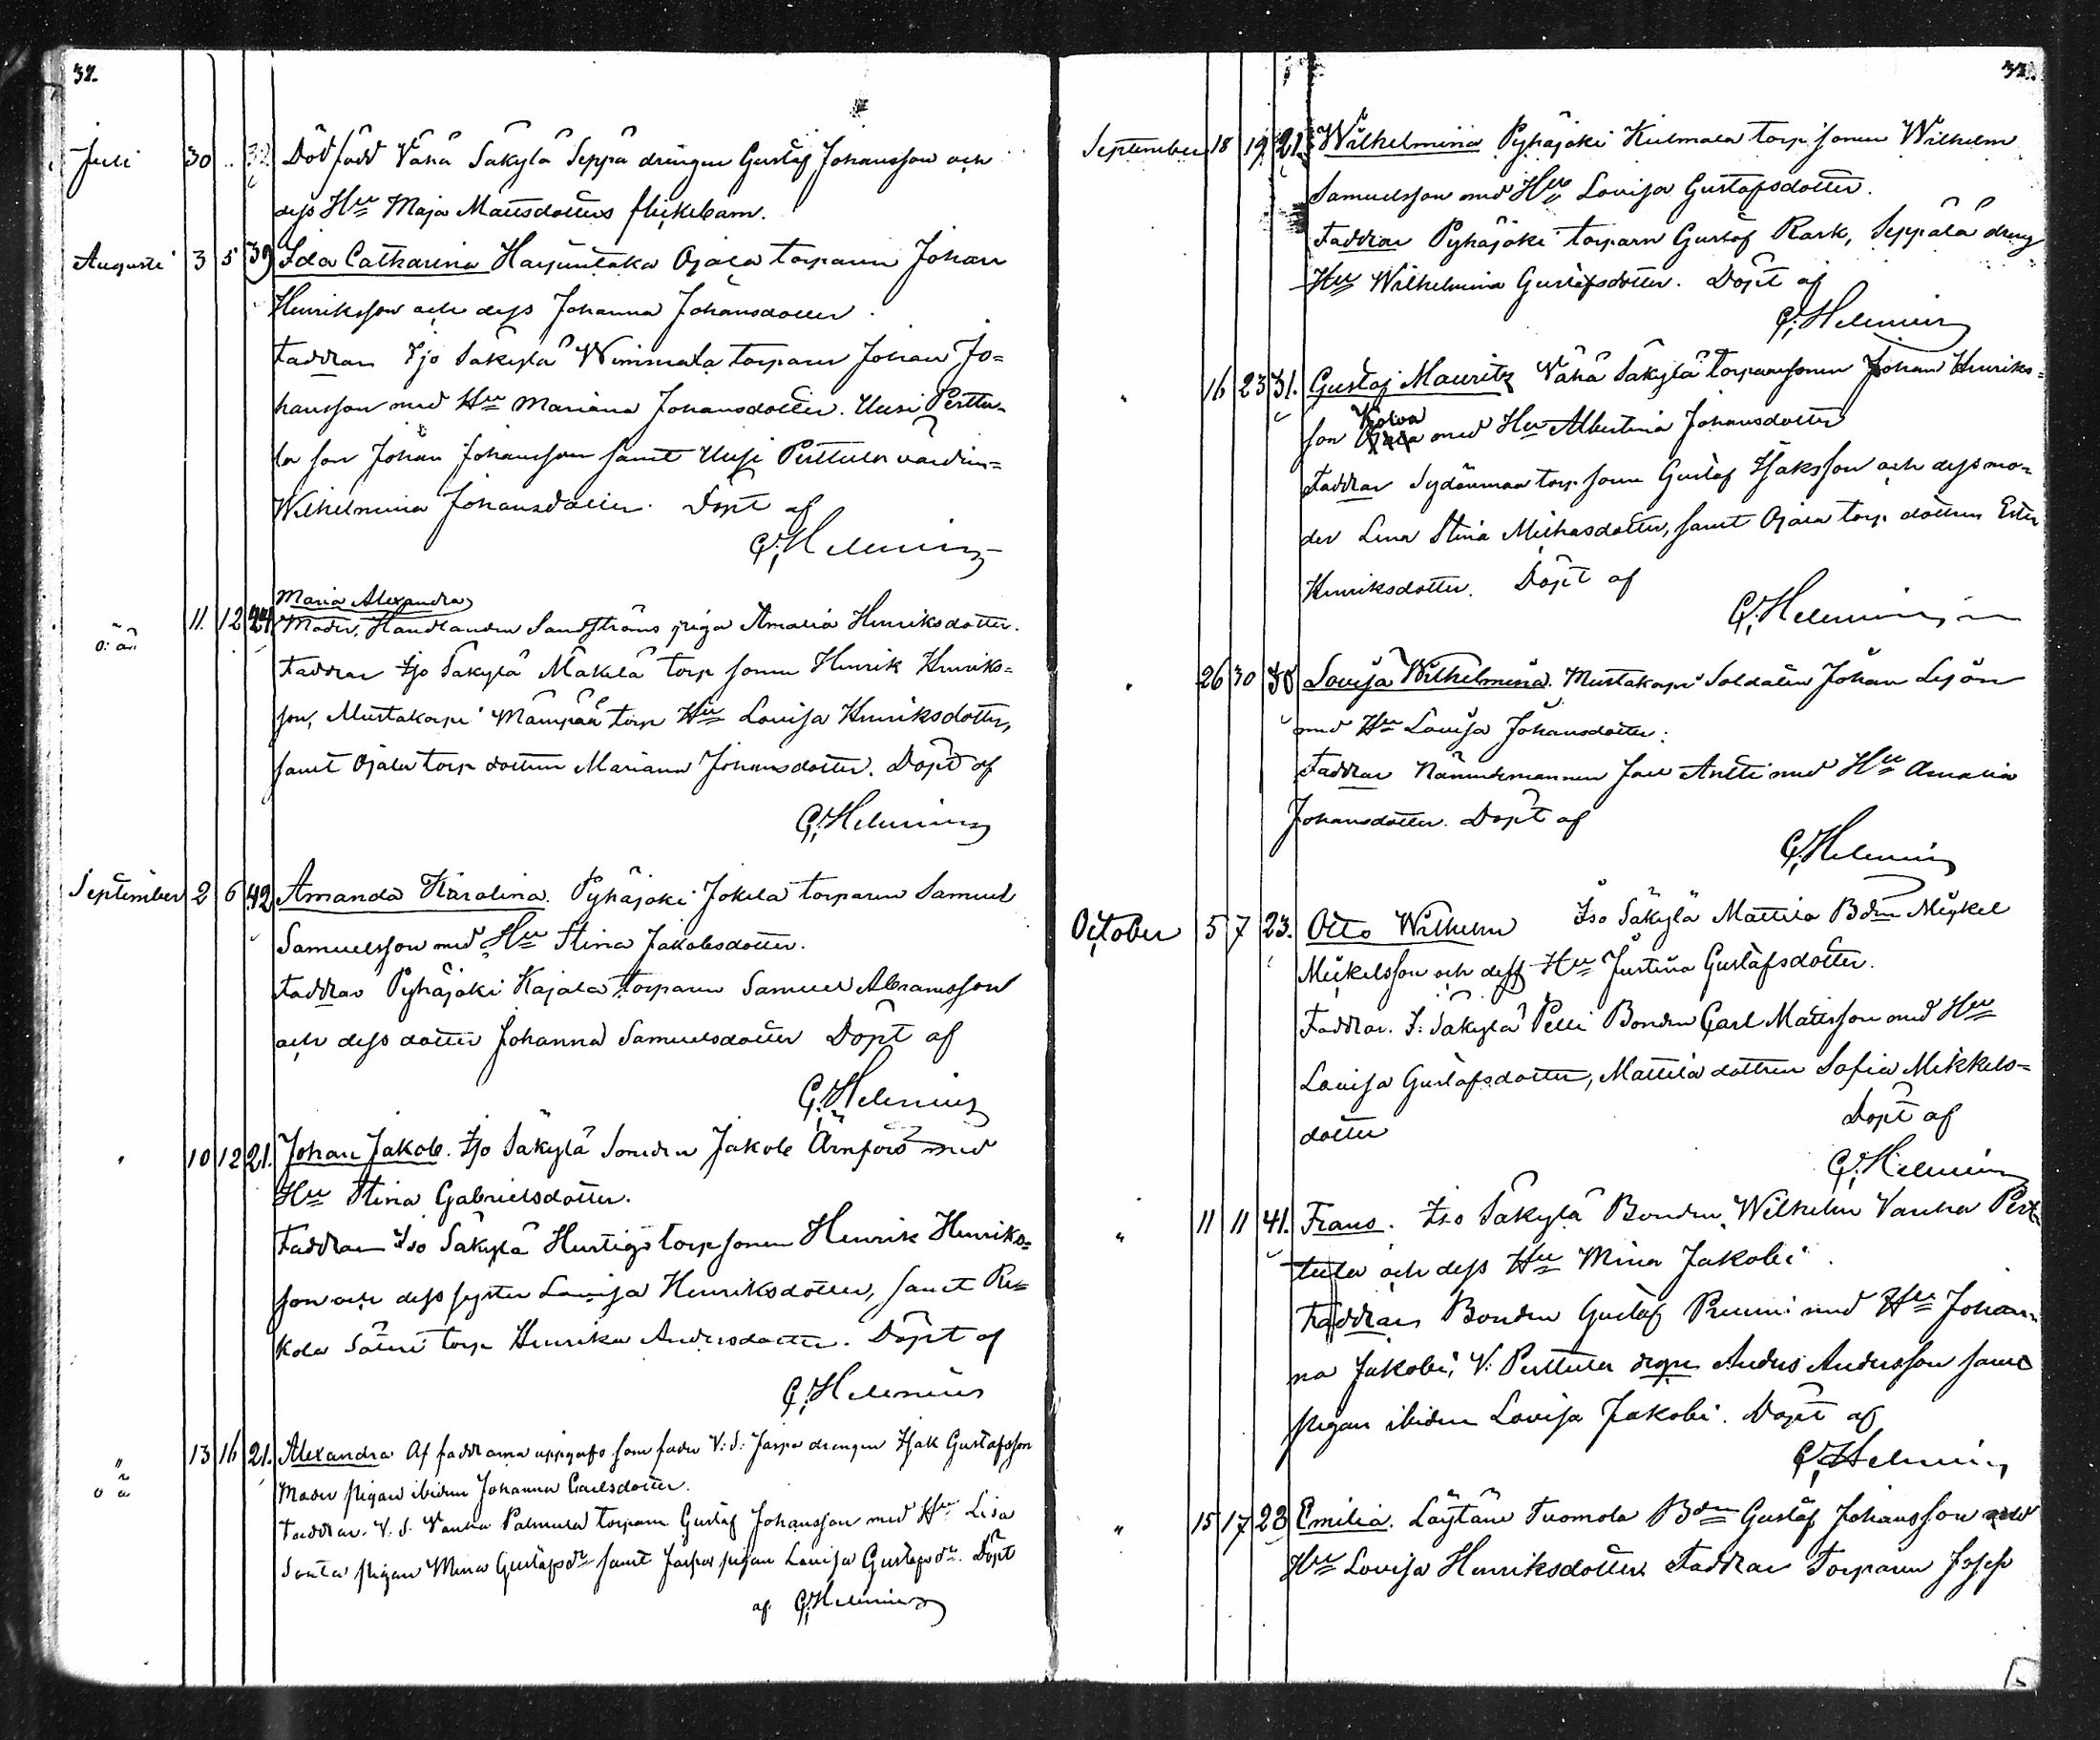 32.
Juli 30 .. 32. Dödfödd Vähä Säkylä Seppä drängen Gustaf Johansson och
dess Hu Maja Mattsdotters flickebarn.
Augusti 3 5 39 Ida Catharina Harjuntaka Ojala torparen Johan
Henriksson och dess Johanna Johansdotter.
Faddrar Iso Säkylä Wimmala torparen Johan Jo=
hansson med Hu Mariana Johansdotter. Uusi Perttu=
la son Johan Johansson samt Uusi Perttula värdin=
Wilhelmina Johansdotter. Döpt af
G. Helenius
Maria Alexandra
11. 12 24 Moder, Handlanden Sandströms piga Amalia Henriksdotter.
o: ä:
Faddrar Iso Säkylä Mäkelä torp sonen Henrik Henriks=
son, Mustakorpi Mäenpää torp Hu Lovisa Henriksdotter,
samt Ojala torp dottren Mariana Johansdotter. Döpt af
G. Helenius
September 2 6 42 Amanda Karolina. Pyhäjoki Jokela torparen Samuel
Samuelsson med Hu Stina Jakobsdotter.
Faddrar Pyhäjoki Kajala torparen Samuel Abramsson
och dess dotter Johanna Samuelsdotter Döpt af
G. Helenius
" 10 12 21. Johan Jakob. Iso Säkylä Smeden Jakob Arnfors med
Hu Stina Gabrielsdotter.
Faddrar Iso Säkylä Hurtigs torp sonen Henrik Henriks=
son och dess syster Lovisa Henriksdotter, samt Ri=
kola torp Henrika Andersdotter. Döpt af
G. Helenius
" 13 16 21. Alexandra Af faddrarna uppgafs som fader V: S: Jaspa drängen Isak Gustafsson
o ä
Moder pigan ibidem Johanna Carlsdotter.
Faddrar. V. S. Vanha Palmula torparen Gustaf Johansson med Hu Lisa
Sonta pigan Mina Gustafsdr samt Jaspa pigan Lovisa Gustafsdr. Döpt
af G. Helenius
33.
September 18 19 21. Wilhelmina Pyhäjoki Kulmala torp sonen Wilhelm
Samuelsson med Hu Lovisa Gustafsdotter.
Faddrar Pyhäjoki torparn Gustaf Rask, Seppälä dräng
Hu Wilhelmina Gustafsdotter. Döpt af
G. Helenius
" 16 23 31. Gustaf Mauritz Vähä Säkylä torparesonen Johan Henriks=
son Kolva med Hu Albertina Johansdotter
Faddrar Sydänmaa torp sonen Gustaf Isaksson och dess mo=
der Lena Stina Michasdotter, samt Ojala torp dottren Ester
Henriksdotter. Döpt af
G. Helenius
" 26 30 38 Lovisa Wilhelmina. Mustakorpi Soldaten Johan Lejon
med Hu Lovisa Johansdotter.
Faddrar Nämndemannen Antti med Hu Amalia
Johansdotter. Döpt af
G. Helenius
October 5 7 23. Otto Wilhelm Iso Säkylä Mattila Bdn Mickel
Mickelsson och dess Hu Justina Gustafsdotter.
Faddrar. I: Säkylä Pelli Bonden Carl Mattsson med Hu
Lovisa Gustafsdotter, Mattila dottren Sofia Mikkels=
dotter Döpt af
G. Helenius
" 11 11 41. Frans. Iso Säkylä Bonden Wilhelm Vanha Pert=
tula och dess Hu Mina Jakobi.
Faddrar Bonden Gustaf Prunni med Hu Johan=
na Jakobi, V: Perttula drgn Anders Andersson samt
pigan ibidem Lovisa Jakobi. Döpt af
G. Helenius
" 15 17 23 Emilia. Löytäne Tuomola Bdn Gustaf Johansson med
Hu Lovisa Henriksdotter. Faddrar Torparen Josef